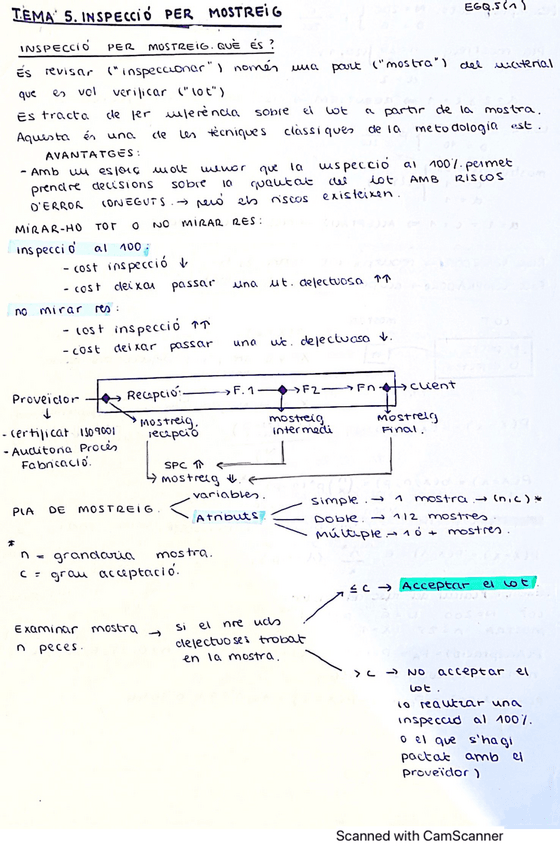 TEMA 5. INSPECCIÓ PER MOSTREIG
EGQ.5(1)
INSPECCIÓ PER MOSTREIG. QUÈ ÉS?
És revisar ("inspeccionar") només una part ("mostra") del material
que es vol verificar ("lot")
Es tracta de fer inferència sobre el lot a partir de la mostra.
Aquesta és una de les tècniques clàssiques de la metodologia est.
AVANTATGES:
- Amb un esforç molt menor que la inspecció al 100% permet
prendre decisions sobre la qualitat del lot AMB RISCOS
D'ERROR CONEGUTS. → però els riscos existeixen.
MIRAR-HO TOT O NO MIRAR RES:
inspecció al 100:
- cost inspecció ↓
- cost deixar passar una ut. defectuosa ↑↑
no mirar res:
- cost inspecció ↑↑
- cost deixar passar una ut. defectuosa ↓.
Proveidor → Recepció: → F.1 → F2 → Fn → client
- Certificat ISO9001
- Auditoria Procés
Fabricació.
mostreig
recepció
mostreig
intermedi
Mostreig
Final.
SPC ↑
→ mostreig ↓
PLA DE MOSTREIG
variables.
Atributs
Simple. → 1 mostra → (n,c) *
Doble. → 1/2 mostres
Múltiple → 1 ó + mostres.
*
n = grandaria mostra.
c = grau acceptació.
Examinar mostra →
n peces.
si el nre uds
defectuoses trobat
en la mostra.
≤ c → Acceptar el lot
> c → No acceptar el
lot.
(o realitzar una
inspecció al 100%.
o el que s'hagi
pactat amb el
proveïdor)
Scanned with CamScanner